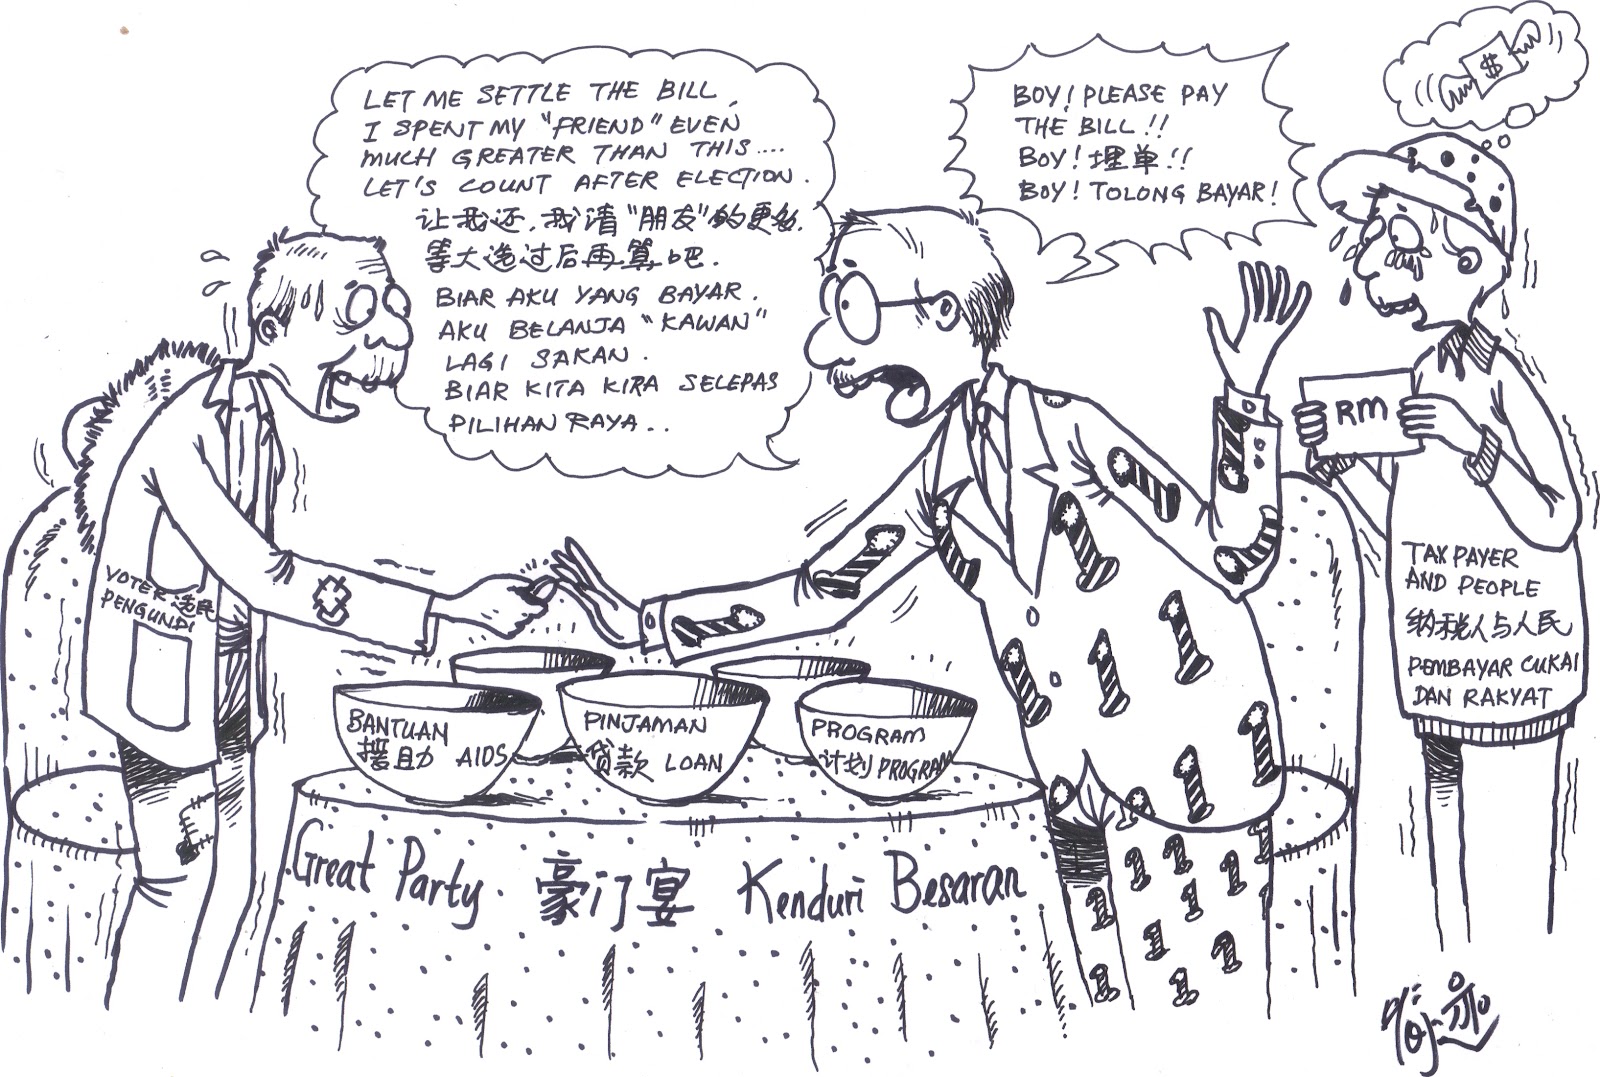 LET ME SETTLE THE BILL,
I SPENT MY "FRIEND" EVEN
MUCH GREATER THAN THIS....
LET'S COUNT AFTER ELECTION.
让我还,我请"朋友"的更多.
等大选过后再算吧.
BIAR AKU YANG BAYAR.
AKU BELANJA "KAWAN"
LAGI SAKAN.
BIAR KITA KIRA SELEPAS
PILIHAN RAYA..
BOY! PLEASE PAY
THE BILL!!
BOY! 埋单!!
BOY! TOLONG BAYAR!
$
RM
VOTER 选民
PENGUNDI
TAX PAYER
AND PEOPLE
纳税人与人民
PEMBAYAR CUKAI
DAN RAKYAT
BANTUAN
援助 AIDS
PINJAMAN
贷款 LOAN
PROGRAM
计划 PROGRAM
Great Party. 豪门宴 Kenduri Besaran